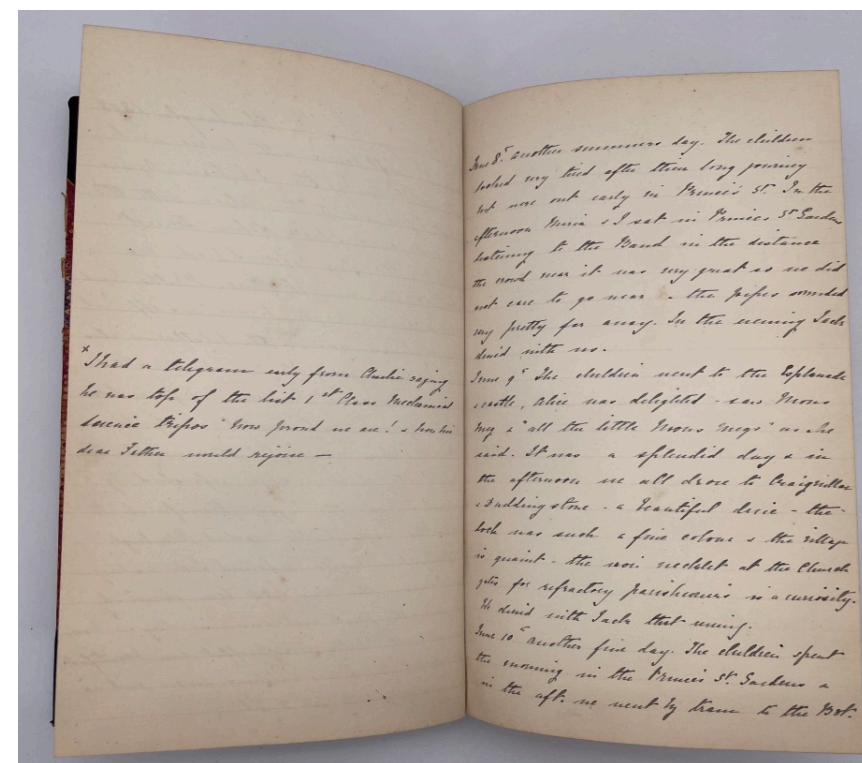 x I had a telegram early from Charlie saying
he was top of the list 1st Class Mechanical
Science Tripos" How proud we are! & how his
dear Father would rejoice —
June 8th another summers day. The children
looked very tired after their long journey
but were out early in Princes St. In the
afternoon & I sat in Princes St Gardens
listening to the Band in the distance
the crowd near it was very great so we did
not care to go near - the pipes sounded
very pretty far away. In the evening Jack
dined with us.
June 9th The children went to the Esplanade
& castle, Alice was delighted - saw Mons
Meg & "all the little Mons Megs" as she
said. It was a splendid day & in
the afternoon we all drove to Craigmillar
& Duddingstone - a beautiful drive - the
loch was such a fine colour & the village
is quaint - the iron necklet at the Church
gates for refractory parishioners is a curiosity.
We dined with Jack that evening.
June 10th another fine day. The children spent
the morning in the Princes St. Gardens &
in the aft. we went by tram to the Bot.